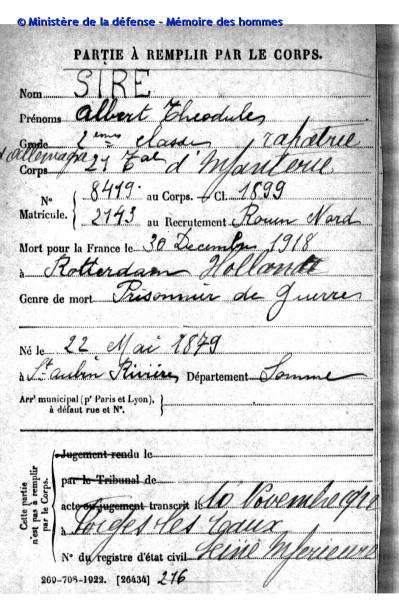 © Ministère de la défense - Mémoire des hommes
PARTIE À REMPLIR PAR LE CORPS.
Nom SIRE
Prénoms Albert Théodules
Grade 2ème classe rapatrié
d'allemagne
Corps 21 d'Infanterie
N° Matricule. { 8419. au Corps. — Cl. 1899
2143 au Recrutement Rouen Nord
Mort pour la France le 30 Decembre 1918
à Rotterdam Hollande
Genre de mort Prisonnier de Guerre
Né le 22 Mai 1879
à St aubin Rivière Département Somme
Arrt municipal (pr Paris et Lyon), à défaut rue et N°. {
Cette partie n'est pas à remplir par le Corps.
Jugement rendu le
par le Tribunal de
acte ou jugement transcrit le 10 Novembre
à Forges les Eaux
N° du registre d'état civil Seine Inférieure
269-708-1922. [26434] 276